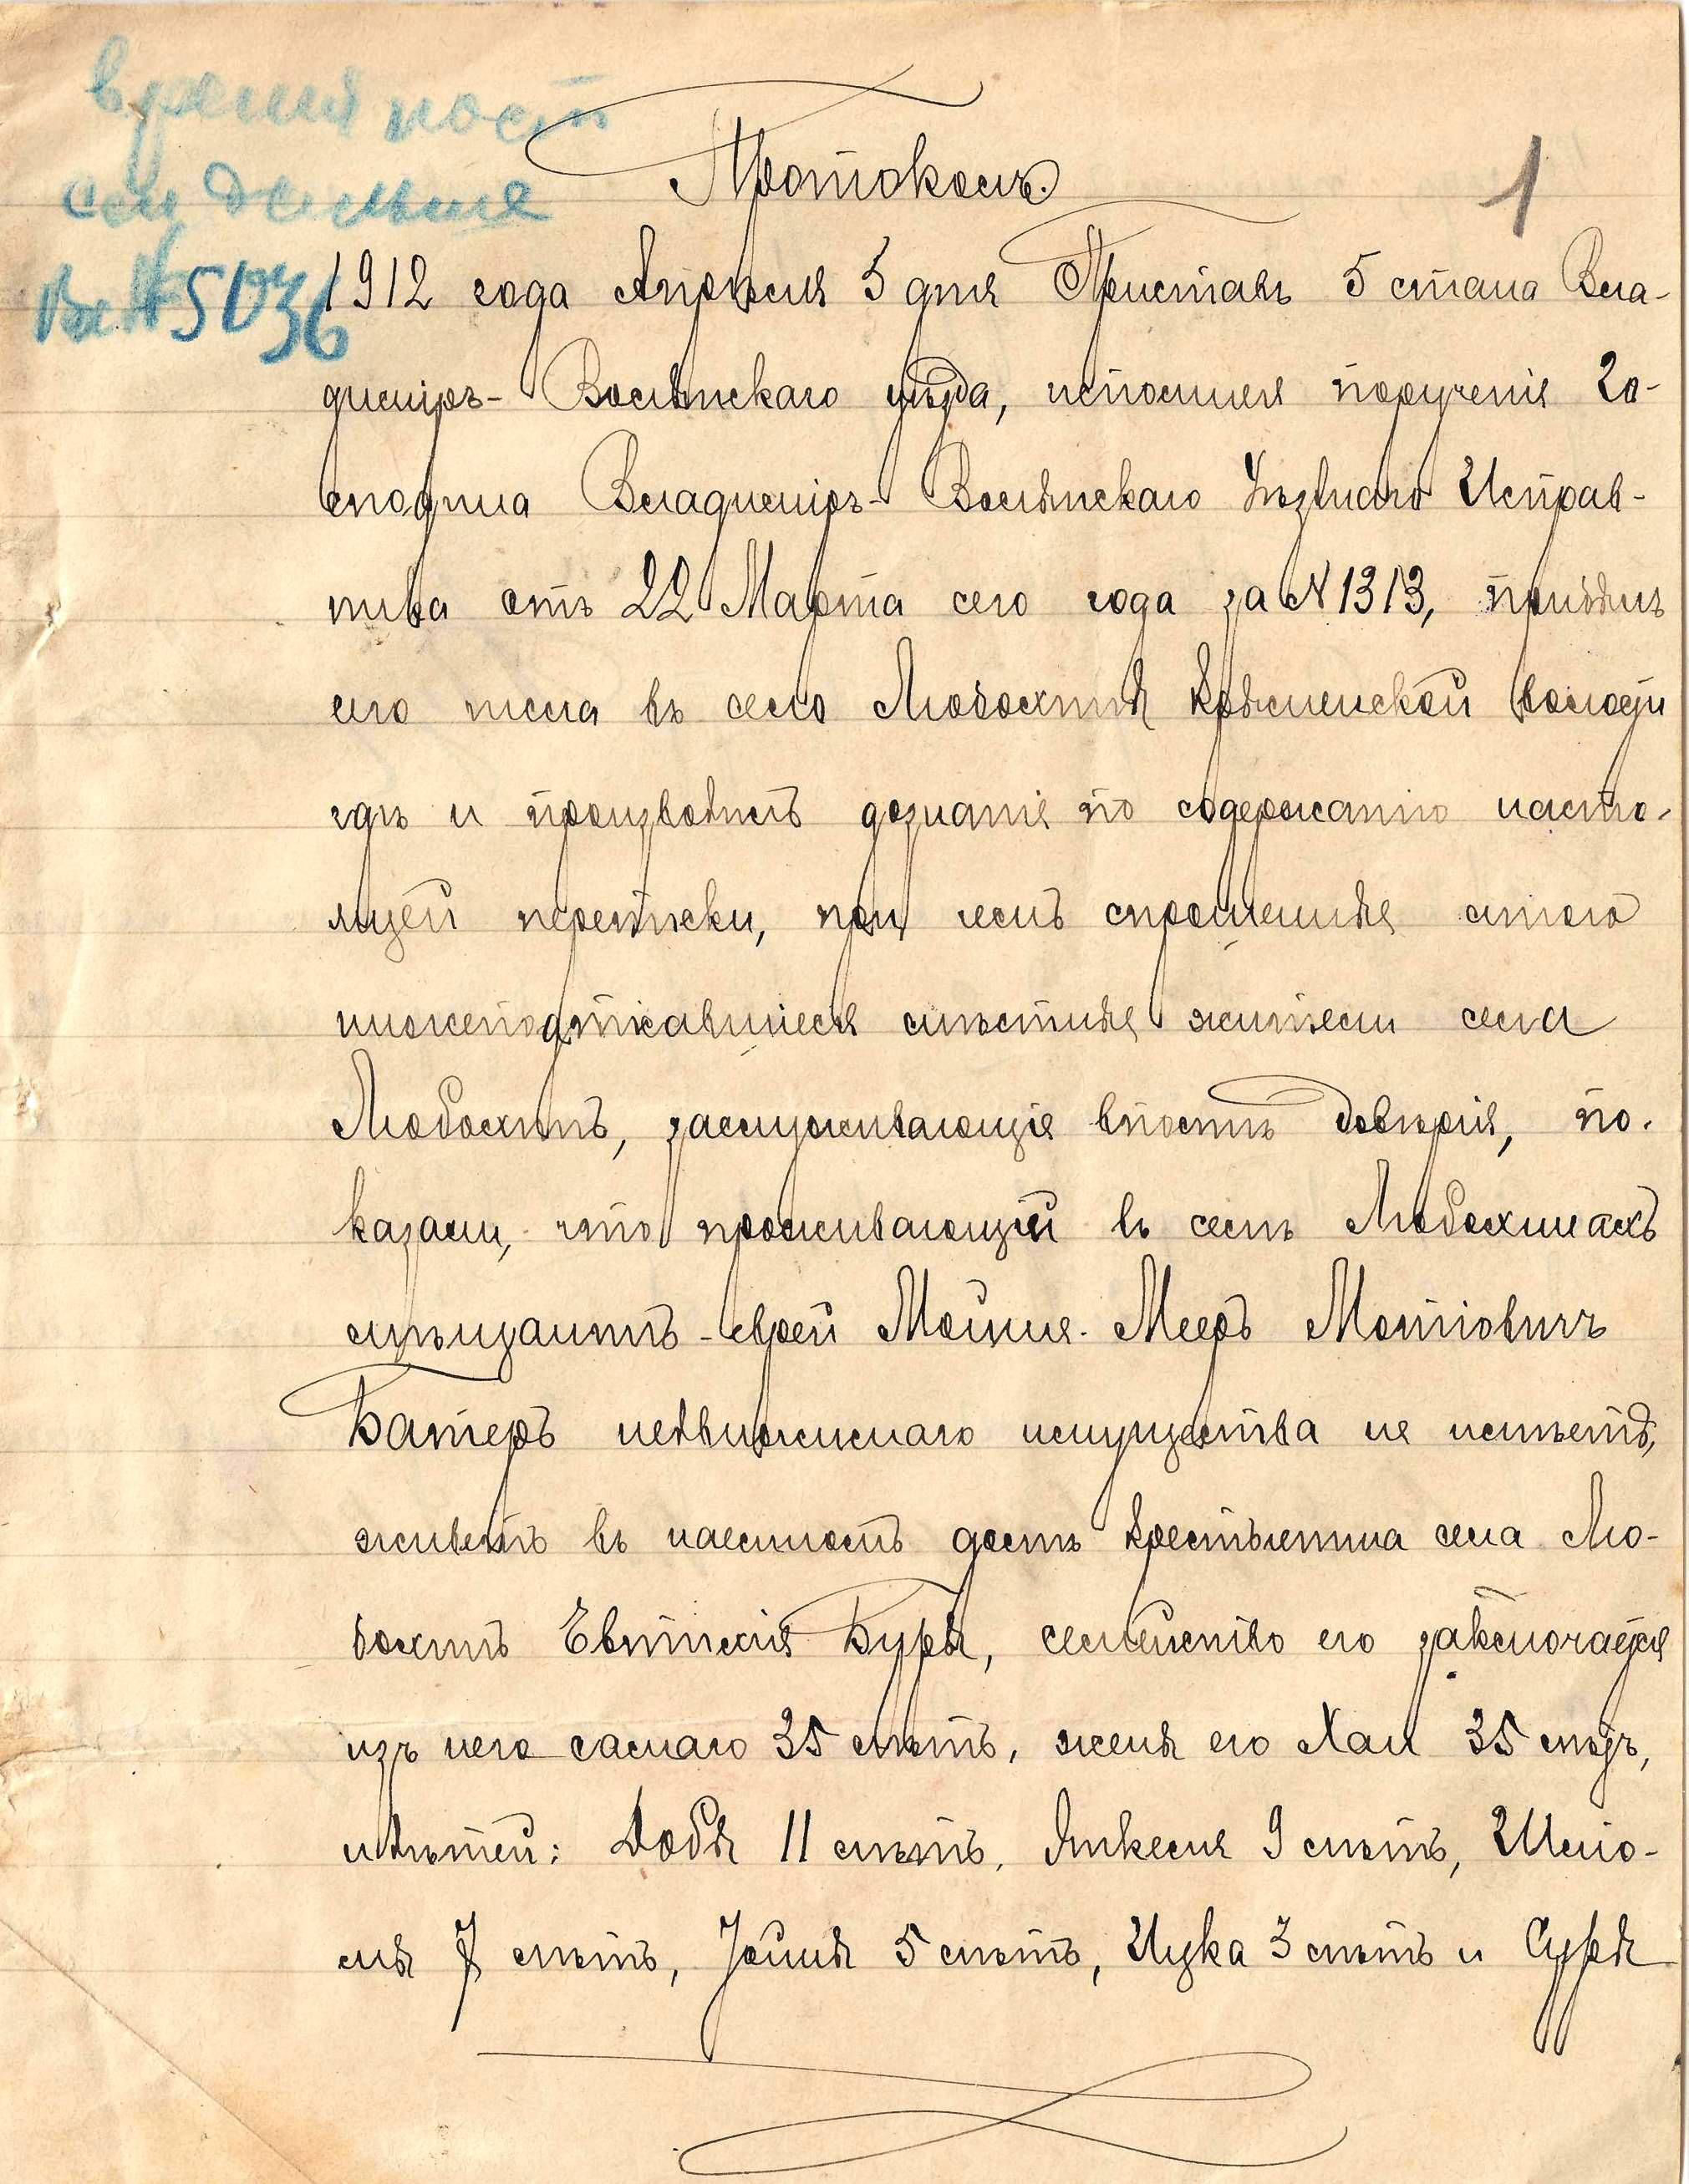 Вх № 5036
Протоколъ.
1
1912 года Апрѣля 5 дня Приставъ 5 стана Вла-
димiръ-Волынскаго уѣзда, исполняя порученiе Го-
сподина Владимiръ-Волынскаго Уѣзднаго Исправ-
ника отъ 22 Марта сего года за № 1313, прибылъ
сего числа въ село Любохины Крымненской волости
гдѣ и производилъ дознанiе по содержанiю насто-
ящей переписки, при чемъ спрошенные мною
нижеподписавшiеся мѣстные жители села
Любохинъ, заслуживающiе вполнѣ довѣрiя, по-
казали, что проживающiй въ селѣ Любохинахъ
мѣщанинъ-еврей Мошко-Мееръ Мотiовичъ
Батеръ недвижимаго имущества не имѣетъ,
живетъ въ наемномъ домѣ крестьянина села Лю-
бохинъ Евтихiя Буры, семейство его заключается
изъ него самаго 35 лѣтъ, жены его Хаи 35 лѣтъ,
и дѣтей: Добы 11 лѣтъ, Янкеля 9 лѣтъ, Шлiо-
мы 7 лѣтъ, 5 лѣтъ, Ицка 3 лѣтъ и Суры